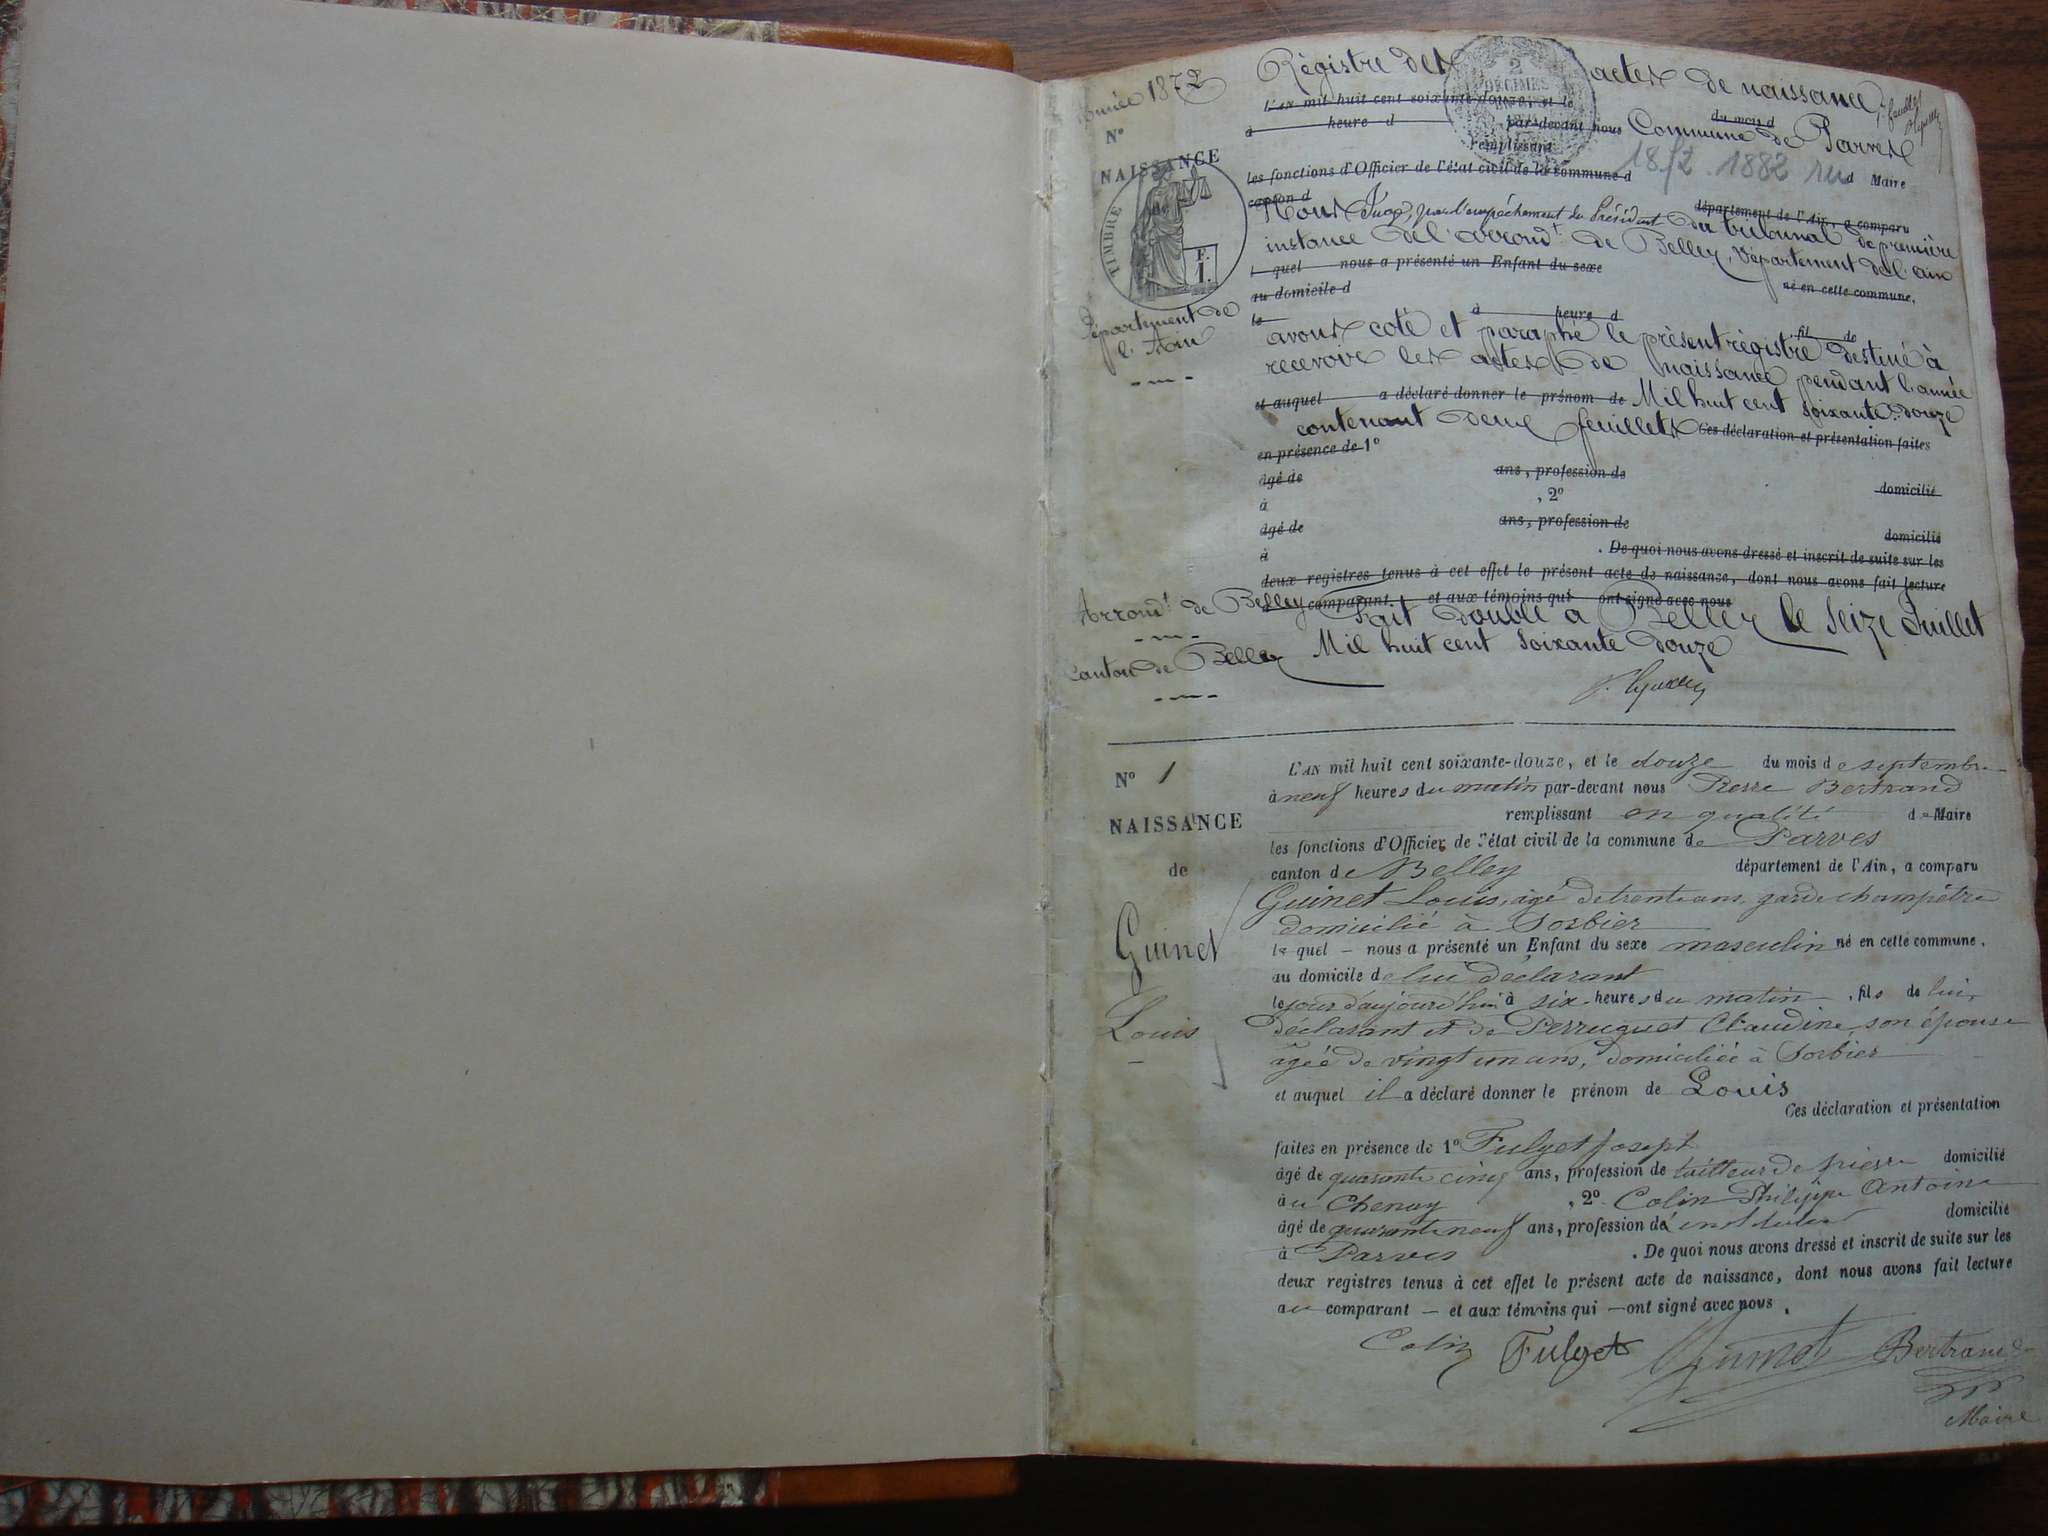 Année 1872
N°
NAISSANCE
TIMBRE
F.
1.
Département de
l'Ain
Arrond.t de Belley
Canton de Belley
Régistre des actes de naissance
2
DECIMES
L'AN mil huit cent soixante-douze, et le du mois d
à heure d par-devant nous Commune de Parves
remplissant
1872.1882 d Maire
les fonctions d'Officier de l'état civil de la commune d
canton d département de l'Ain, a comparu
Nous Juge, pour l'empéchement du Président du tribunal de première
instance de l'arrond.t de Belley, Département de l'ain
l quel nous a présenté un Enfant du sexe né en cette commune,
au domicile d
le à heure d fil de
avons coté et paraphé le présent régistre destiné à
recevoir les actes de naissance pendant l'année
et auquel a déclaré donner le prénom de Mil huit cent soixante-douze
contenant deux feuillets Ces déclaration et présentation faites
en présence de 1°
âgé de ans, profession de domicilié
à , 2°
âgé de ans, profession de domicilié
à . De quoi nous avons dressé et inscrit de suite sur les
deux registres tenus à cet effet le présent acte de naissance, dont nous avons fait lecture
comparant et aux témoins qui ont signé avec nous
Fait double à Belley le seize Juillet
Mil huit cent soixante douze
N° 1
NAISSANCE
de
Guinet
Louis
L'AN mil huit cent soixante-douze, et le douze du mois de septembre
à neuf heures du matin par-devant nous Pierre Bertrand
remplissant en qualité de Maire
les fonctions d'Officier de l'état civil de la commune de Parves
canton de Belley département de l'Ain, a comparu
Guinet Louis, âgé de trente ans, garde champêtre
domicilié à Sorbier
le quel — nous a présenté un Enfant du sexe masculin né en cette commune,
au domicile de lui déclarant
le jour d'aujourd'hui à six heures du matin , fils de lui,
déclarant et de Perruquet Claudine son épouse
âgée de vingt un ans, domiciliée à Sorbier
et auquel il a déclaré donner le prénom de Louis
Ces déclaration et présentation
faites en présence de 1° Fulget Joseph
âgé de quarante cinq ans, profession de tailleur de pierre domicilié
à u Chenay , 2° Colin Philippe Antoine
âgé de quarante neuf ans, profession d'instituteur domicilié
à Parves . De quoi nous avons dressé et inscrit de suite sur les
deux registres tenus à cet effet le présent acte de naissance, dont nous avons fait lecture
au comparant — et aux témoins qui — ont signé avec nous.
Colin Fulget Guinet Bertrand
Maire